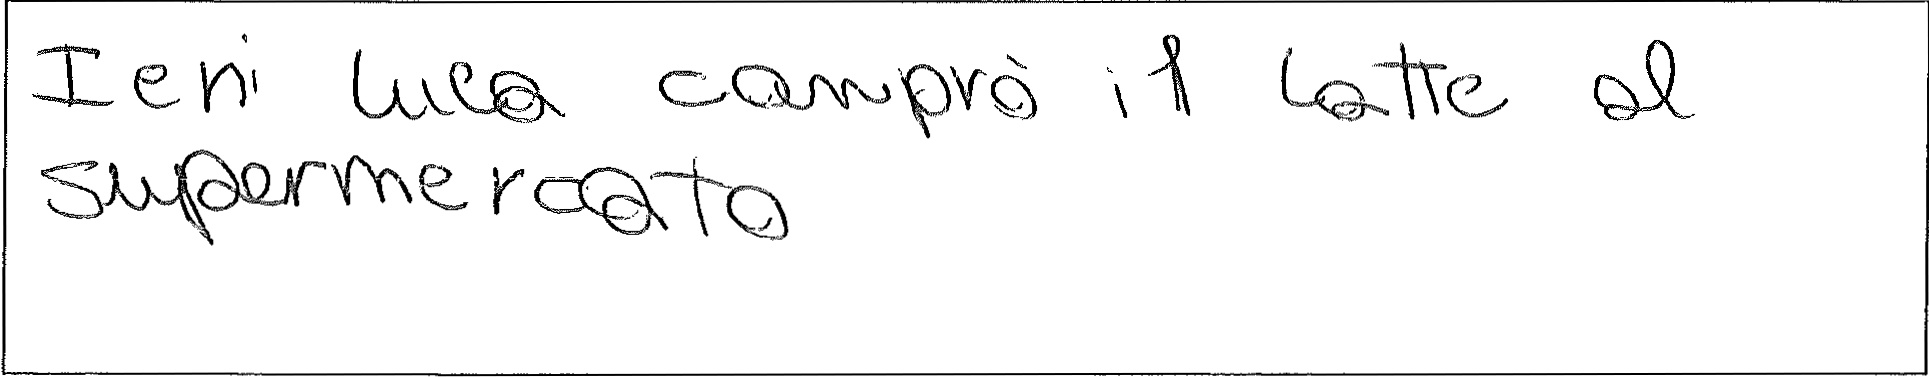 Ieri Luca comprò il latte al
supermercato